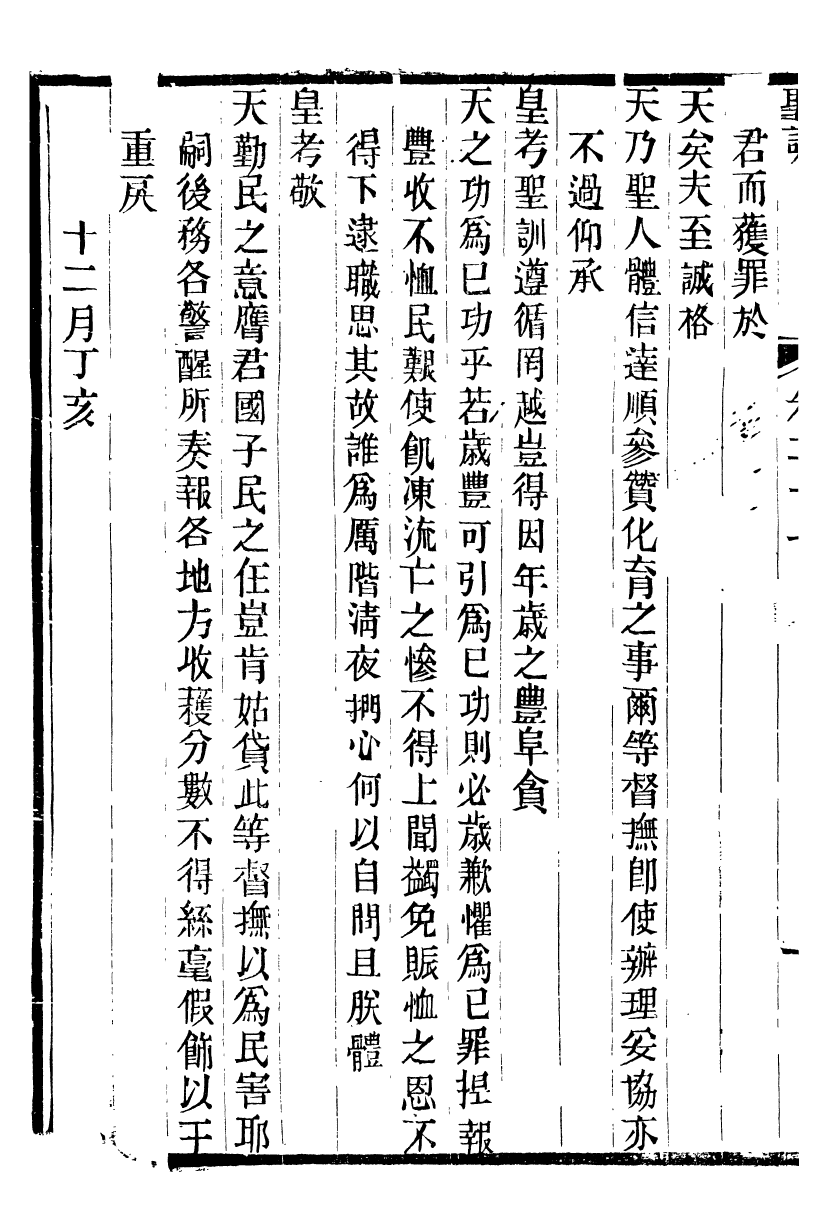 聖訓
君而獲罪於
天矣夫至誠格
天乃聖人體信達順參贊化育之事爾等督撫卽使辦理妥協亦
不過仰承
皇考聖訓遵循罔越豈得因年歲之豐阜貪
天之功爲已功乎若歲豐可引爲已功則必歲歉懼爲已罪捏報
豐收不恤民艱使飢凍流亡之慘不得上聞蠲免賑恤之恩不
得下逮職思其故誰爲厲階淸夜捫心何以自問且朕體
皇考敬
天勤民之意膺君國子民之任豈肯姑貸此等督撫以爲民害耶
嗣後務各警醒所奏報各地方收穫分數不得絲毫假飾以干
重戾
十二月丁亥